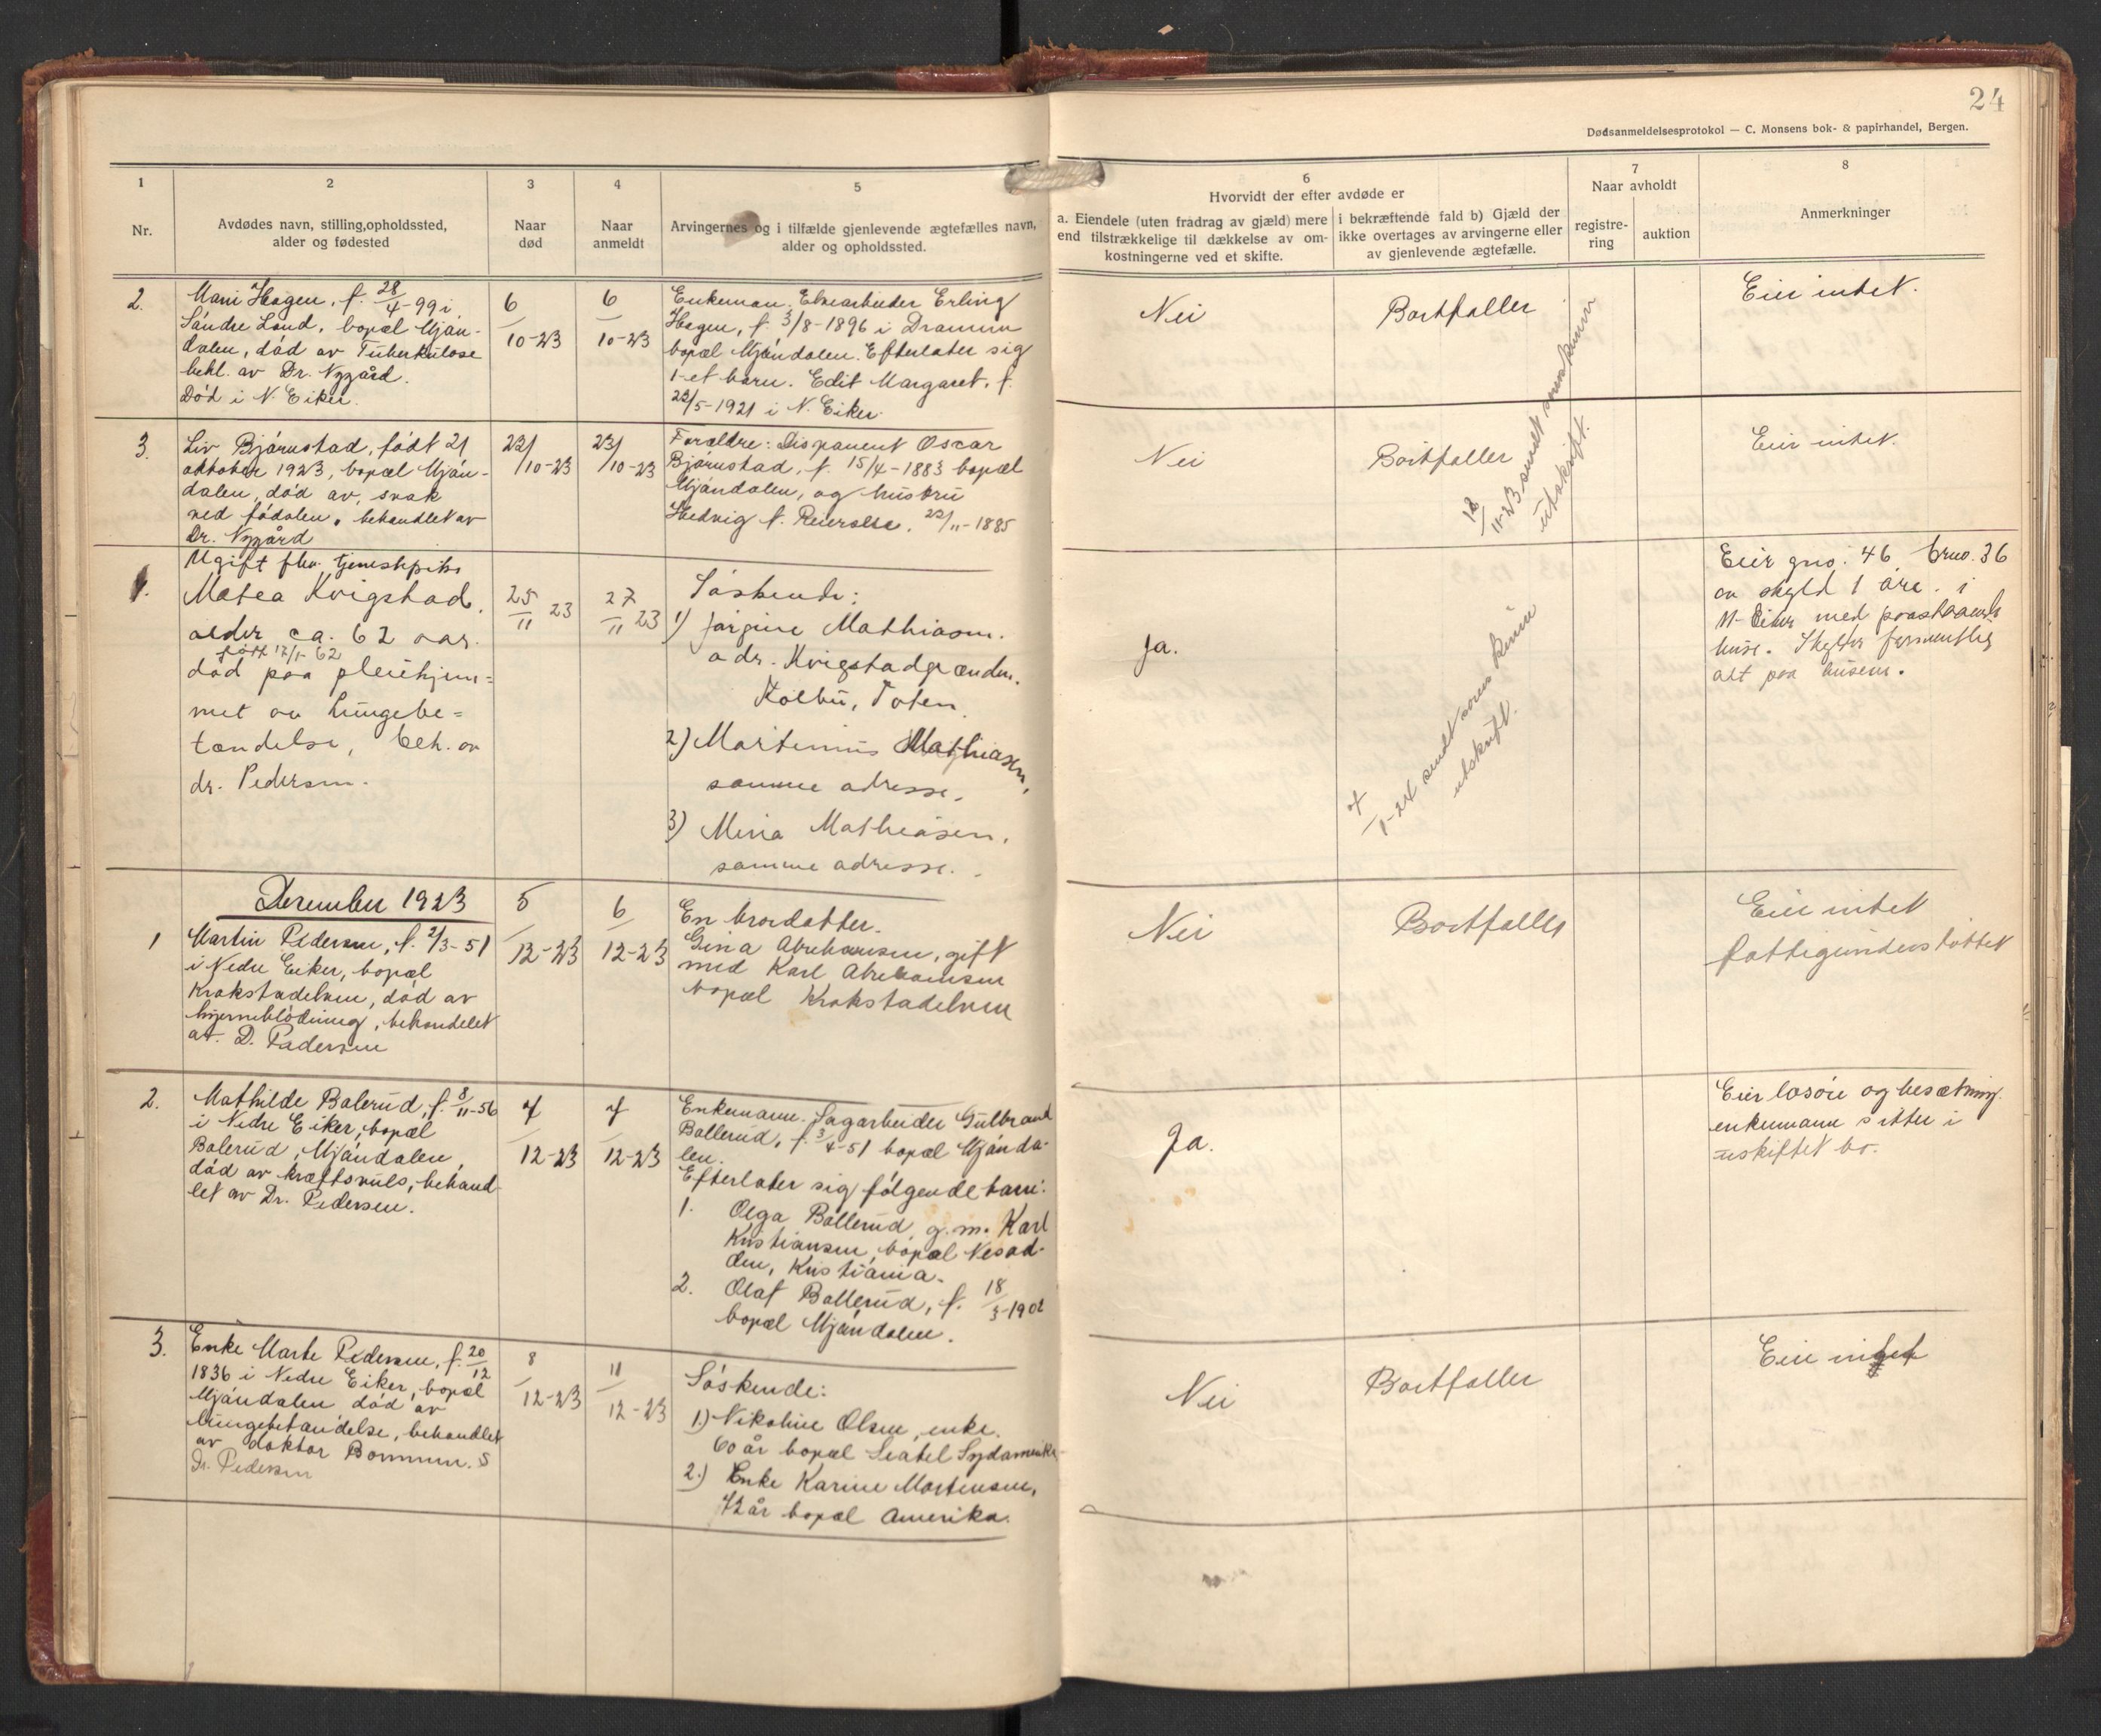 24
Dødsanmeldelsesprotokol — C. Monsens bok- & papirhandel, Bergen.
1
Nr.
2
Avdødes navn, stilling, opholdssted,
alder og fødested
3
Naar
død
4
Naar
anmeldt
5
Arvingernes og i tilfælde gjenlevende ægtefælles navn,
alder og opholdssted.
6
Hvorvidt der efter avdøde er
a. Eiendele (uten fradrag av gjæld) mere
end tilstrækkelige til dækkelse av om-
kostningerne ved et skifte.
i bekræftende fald b) Gjæld der
ikke overtages av arvingerne eller
av gjenlevende ægtefælle.
7
Naar avholdt
registre-
ring
auktion
8
Anmerkninger
2.
Mani Hagen, f. 28/4-99 i
Søndre Land, bopæl Mjøn-
dalen, død av Tuberkulose
behl. av Dr. Nygård.
Død i N. Eiker.
6/10-23
6/10-23
Enkeman. Elvearbeider Erling
Hagen, f. 3/8-1896 i Drammen
bopæl Mjøndalen. Efterlater sig
1-et barn. Edit Margaret. f.
22/5-1921 i N. Eiker.
Nei
Bortfaller
Eier intet.
3.
Liv Bjørnstad, født 21
oktober 1923, bopæl Mjøn-
dalen, død av, svak
ved fødslen, behandlet av
Dr. Nygård
23/10-23
23/10-23
Forældre: Disponent Oscar
Bjørnstad, f. 15/4-1883 bopæl
Mjøndalen, og hustru
Hedvig f. Reiersen. 22/11-1885
Nei
Bortfaller
18/11-23 sendt sorenskriveren
utskrift.
Eier intet.
1.
Ugift fhv. tjenestepike
Matea Kvigstad.
alder ca. 62 aar.
født 17/1-62
død paa pleiehjem=
met av Lungebe=
tændelse, beh. av
dr. Pedersen.
25/11 23
27/11 23
Søskende:
1) Jørgine Mathiasen.
adr. Kvigstadgrænden.
Kolbu, Toten.
2) Martinius Mathiasen,
samme adresse.
3) Mina Mathiasen,
samme adresse.
Ja.
7/1-24 sendt sorenskriver
utskrift.
Eier gno. 46 bruo. 36
av skyld 1 øre. i
N-Eiker med paastaaende
huse. Skylder formentlig
alt paa husene.
December 1923
1
Martin Pedersen, f. 2/3-51
i Nedre Eiker, bopæl
Krokstadelven, død av
hjerneblødning, behandelet
av. D. Pedersen
5/12-23
6/12-23
En brordatter.
Gina Abrehamsen, gift
med Karl Abrehamsen
bopæl Krokstadelven
Nei
Bortfaller
Eier intet
fattigunderstøttet
2.
Mathilde Balerud, f. 8/11-56
i Nedre Eiker, bopæl
Balerud, Mjøndalen,
død av kræftsvuls, behand-
let av Dr. Pedersen.
7/12-23
7/12-23
Enkemann. Sagarbeider Gulbrand
Ballerud, f. 3/4-51 bopæl Mjønda-
len.
Efterlater sig følgende barn:
1. Olga Ballerud, g.m. Karl
Kristiansen, bopæl Nesod-
den, Kristiania.
2. Olaf Ballerud, f. 18/3-1901
bopæl Mjøndalen.
Ja.
Eier løsøre og besætning.
enkemann sitter i
uskiftet bo.
3.
Enke Marte Pedersen, f. 20/12
1836 i Nedre Eiker, bopæl
Mjøndalen død av
lungebetændelse, behandlet
av doktor Bommen. S
Dr. Pedersen
8/12-23
11/12-23
Søskende:
1.) Nikoline Olsen, enke.
60 år bopæl Seatel Sydamerika
2.) Enke Karine Mortensen,
72 år bopæl Amerika.
Nei
Bortfaller
Eier intet